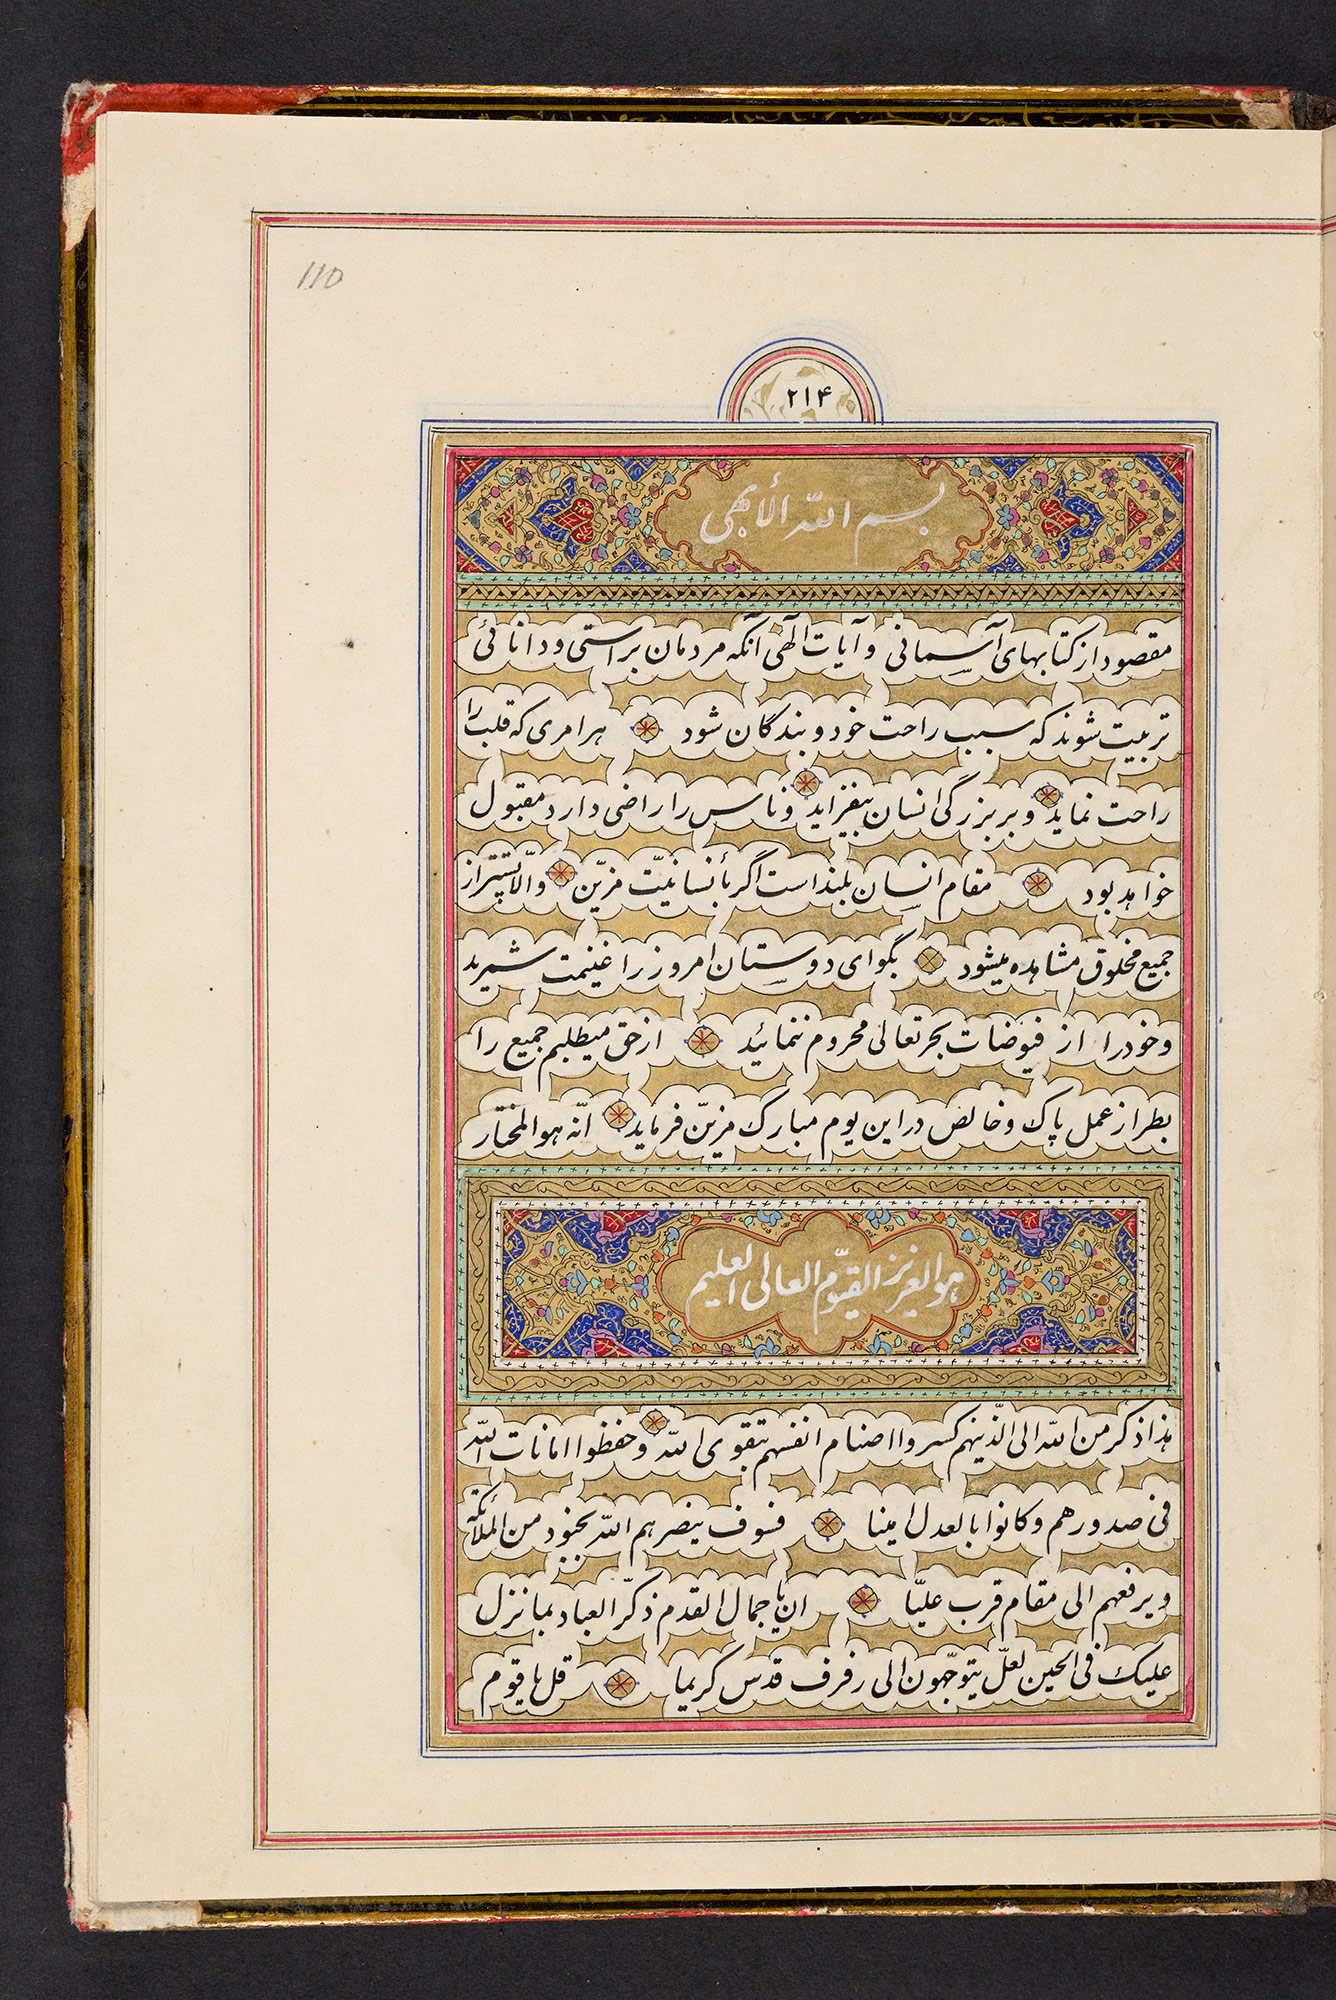 110
۲۱۴
بسم الله الأبهى
مقصود از کتابهای آسمانی و آیات الهی آنکه مردمان براستی و دانائی
تربیت شوند که سبب راحت خود و بندگان شود هر امری که قلب را
راحت نماید و بر بزرگی انسان بیفزاید و ناس را راضی دارد مقبول
خواهد بود مقام انسان بلند است اگر بأنسانیّت مزیّن والّا پست‌تر از
جمیع مخلوق مشاهده میشود بگو ای دوستان امروز را غنیمت شمرید
و خود را از فیوضات بحر تعالی محروم ننمائید از حق میطلبم جمیع را
بطراز عمل پاک و خالص در این یوم مبارک مزیّن فرماید انّه هو المختار
هو العزیز القیّوم العالی العلیم
هذا ذکر من الله الی الّذینهم کسروا اصنام انفسهم بتقوی الله و حفظوا امانات الله
فی صدورهم و کانوا بالعدل امینا فسوف ینصرهم الله بجنود من الملائکة
و یرفعهم الی مقام قرب علیّا ان یا جمال القدم ذکّر العباد بما نزل
علیک فی الحین لعلّ یتوجّهون الی رفرف قدس کریما قل یا قوم